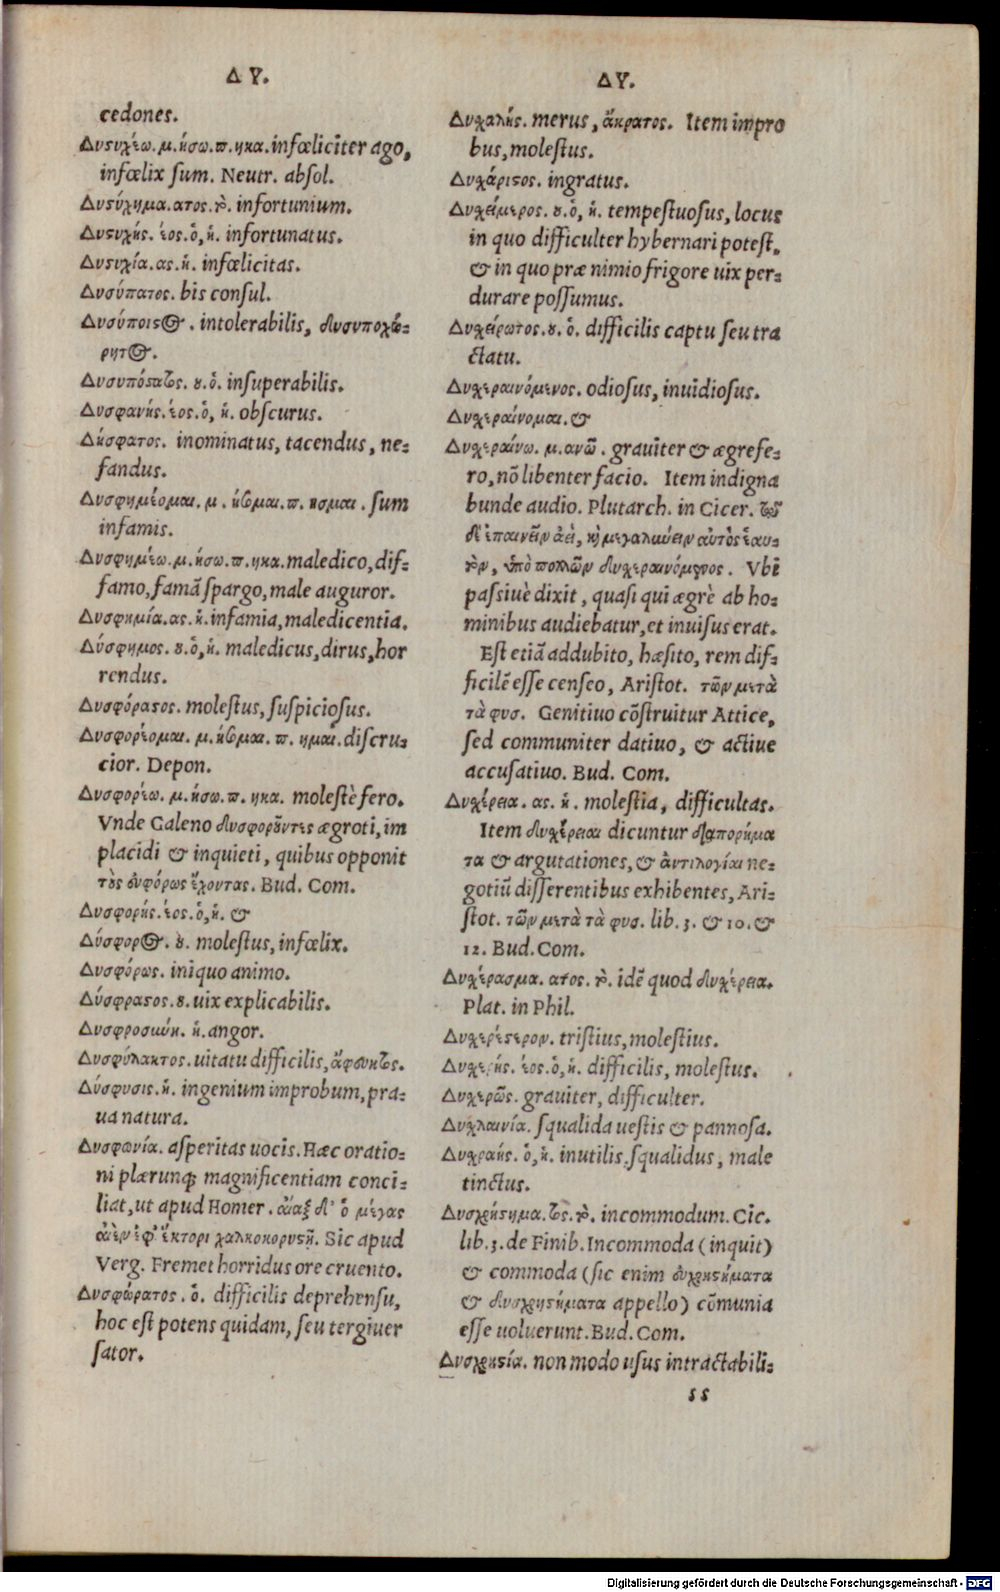 Δ Υ.
cedones.
Δυςυχέω. μ. ήσω. π. ηκα. infœliciter ago,
infœlix sum. Neutr. absol.
Δυςύχημα. ατος. τὸ. infortunium.
Δυςυχὴς. έος. ὁ, ἡ. infortunatus.
Δυςυχία. ας. ἡ. infœlicitas.
Δυσύπατος. bis consul.
Δυσύποιςος. intolerabilis, δυσυποχώ-
ρητος.
Δυσυπόςατος. ȣ. ὁ. insuperabilis.
Δυσφανὴς. έος. ὁ, ἡ. obscurus.
Δήσφατος. inominatus, tacendus, ne-
fandus.
Δυσφημέομαι. μ. ήσομαι. π. ησμαι. sum
infamis.
Δυσφημέω. μ. ήσω. π. ηκα. maledico, dif-
famo, famā spargo, male auguror.
Δυσφημία. ας. ἡ. infamia, maledicentia.
Δύσφημος. ȣ. ὁ, ἡ. maledicus, dirus, hor
rendus.
Δυσφόρατος. molestus, suspiciosus.
Δυσφορέομαι. μ. ήσομαι. π. ημαι. discru-
cior. Depon.
Δυσφορέω. μ. ήσω. π. ηκα. molestè fero.
Vnde Galeno δυσφοροῦντες ægroti, im
placidi & inquieti, quibus opponit
τοὺς εὐφόρως ἔχοντας. Bud. Com.
Δυσφορὴς. έος. ὁ, ἡ. &
Δύσφορος. ȣ. molestus, infœlix.
Δυσφόρως. iniquo animo.
Δύσφρατος. ȣ. uix explicabilis.
Δυσφροσύνη. ἡ. angor.
Δυσφύλακτος. uitatu difficilis, ἄφευκτος.
Δύσφυσις. ἡ. ingenium improbum, pra-
ua natura.
Δυσφωνία. asperitas uocis. Hæc oratio-
ni plærunq; magnificentiam conci-
liat, ut apud Homer. αἴας δ' ὁ μέγας
αἰὲν ἐφ' ἕκτορι χαλκοκορυςῇ. Sic apud
Verg. Fremet horridus ore cruento.
Δυσφώρατος. ὁ. difficilis deprehensu,
hoc est potens quidam, seu tergiuer
sator.
Δ Υ.
Δυχαλὴς. merus, ἄκρατος. Item impro
bus, molestus.
Δυχάριςος. ingratus.
Δυχείμερος. ȣ. ὁ, ἡ. tempestuosus, locus
in quo difficulter hybernari potest,
& in quo præ nimio frigore uix per-
durare possumus.
Δυχείρωτος. ȣ. ὁ. difficilis captu seu tra
ctatu.
Δυχεραινόμενος. odiosus, inuidiosus.
Δυχεραίνομαι. &
Δυχεραίνω. μ. ανῶ. grauiter & ægrefe-
ro, nō libenter facio. Item indigna
bunde audio. Plutarch. in Cicer. τῷ
δ' ἐπαινεῖν ἀεὶ, καὶ μεγαλύνειν αὐτὸς ἑαυ-
τὸν, ὑπὸ πολλῶν δυχεραινόμενος. Vbi
passiuè dixit, quasi qui ægrè ab ho-
minibus audiebatur, et inuisus erat.
Est etiā addubito, hæsito, rem dif-
ficilē esse censeo, Aristot. τῶν μετὰ
τὰ φυσ. Genitiuo cōstruitur Attice,
sed communiter datiuo, & actiue
accusatiuo. Bud. Com.
Δυχέρεια. ας. ἡ. molestia, difficultas.
Item δυχέρειαι dicuntur διαπορήμα
τα & argutationes, & ἀντιλογίαι ne-
gotiū disserentibus exhibentes, Ari-
stot. τῶν μετὰ τὰ φυσ. lib. 3. & 10. &
12. Bud. Com.
Δυχέρασμα. ατος. τὸ. idē quod δυχέρεια.
Plat. in Phil.
Δυχερέςερον. tristius, molestius.
Δυχερὴς. έος. ὁ, ἡ. difficilis, molestus.
Δυχερῶς. grauiter, difficulter.
Δυχλαινία. squalida uestis & pannosa.
Δυχραὴς. ὁ, ἡ. inutilis. squalidus, male
tinctus.
Δυσχρήςημα. τος. τὸ. incommodum. Cic.
lib. 3. de Finib. Incommoda (inquit)
& commoda (sic enim εὐχρηςήματα
& δυσχρηςήματα appello) cōmunia
esse uoluerunt. Bud. Com.
Δυσχρηςία. non modo usus intractabili-
ss
Digitalisierung gefördert durch die Deutsche Forschungsgemeinschaft - DFG